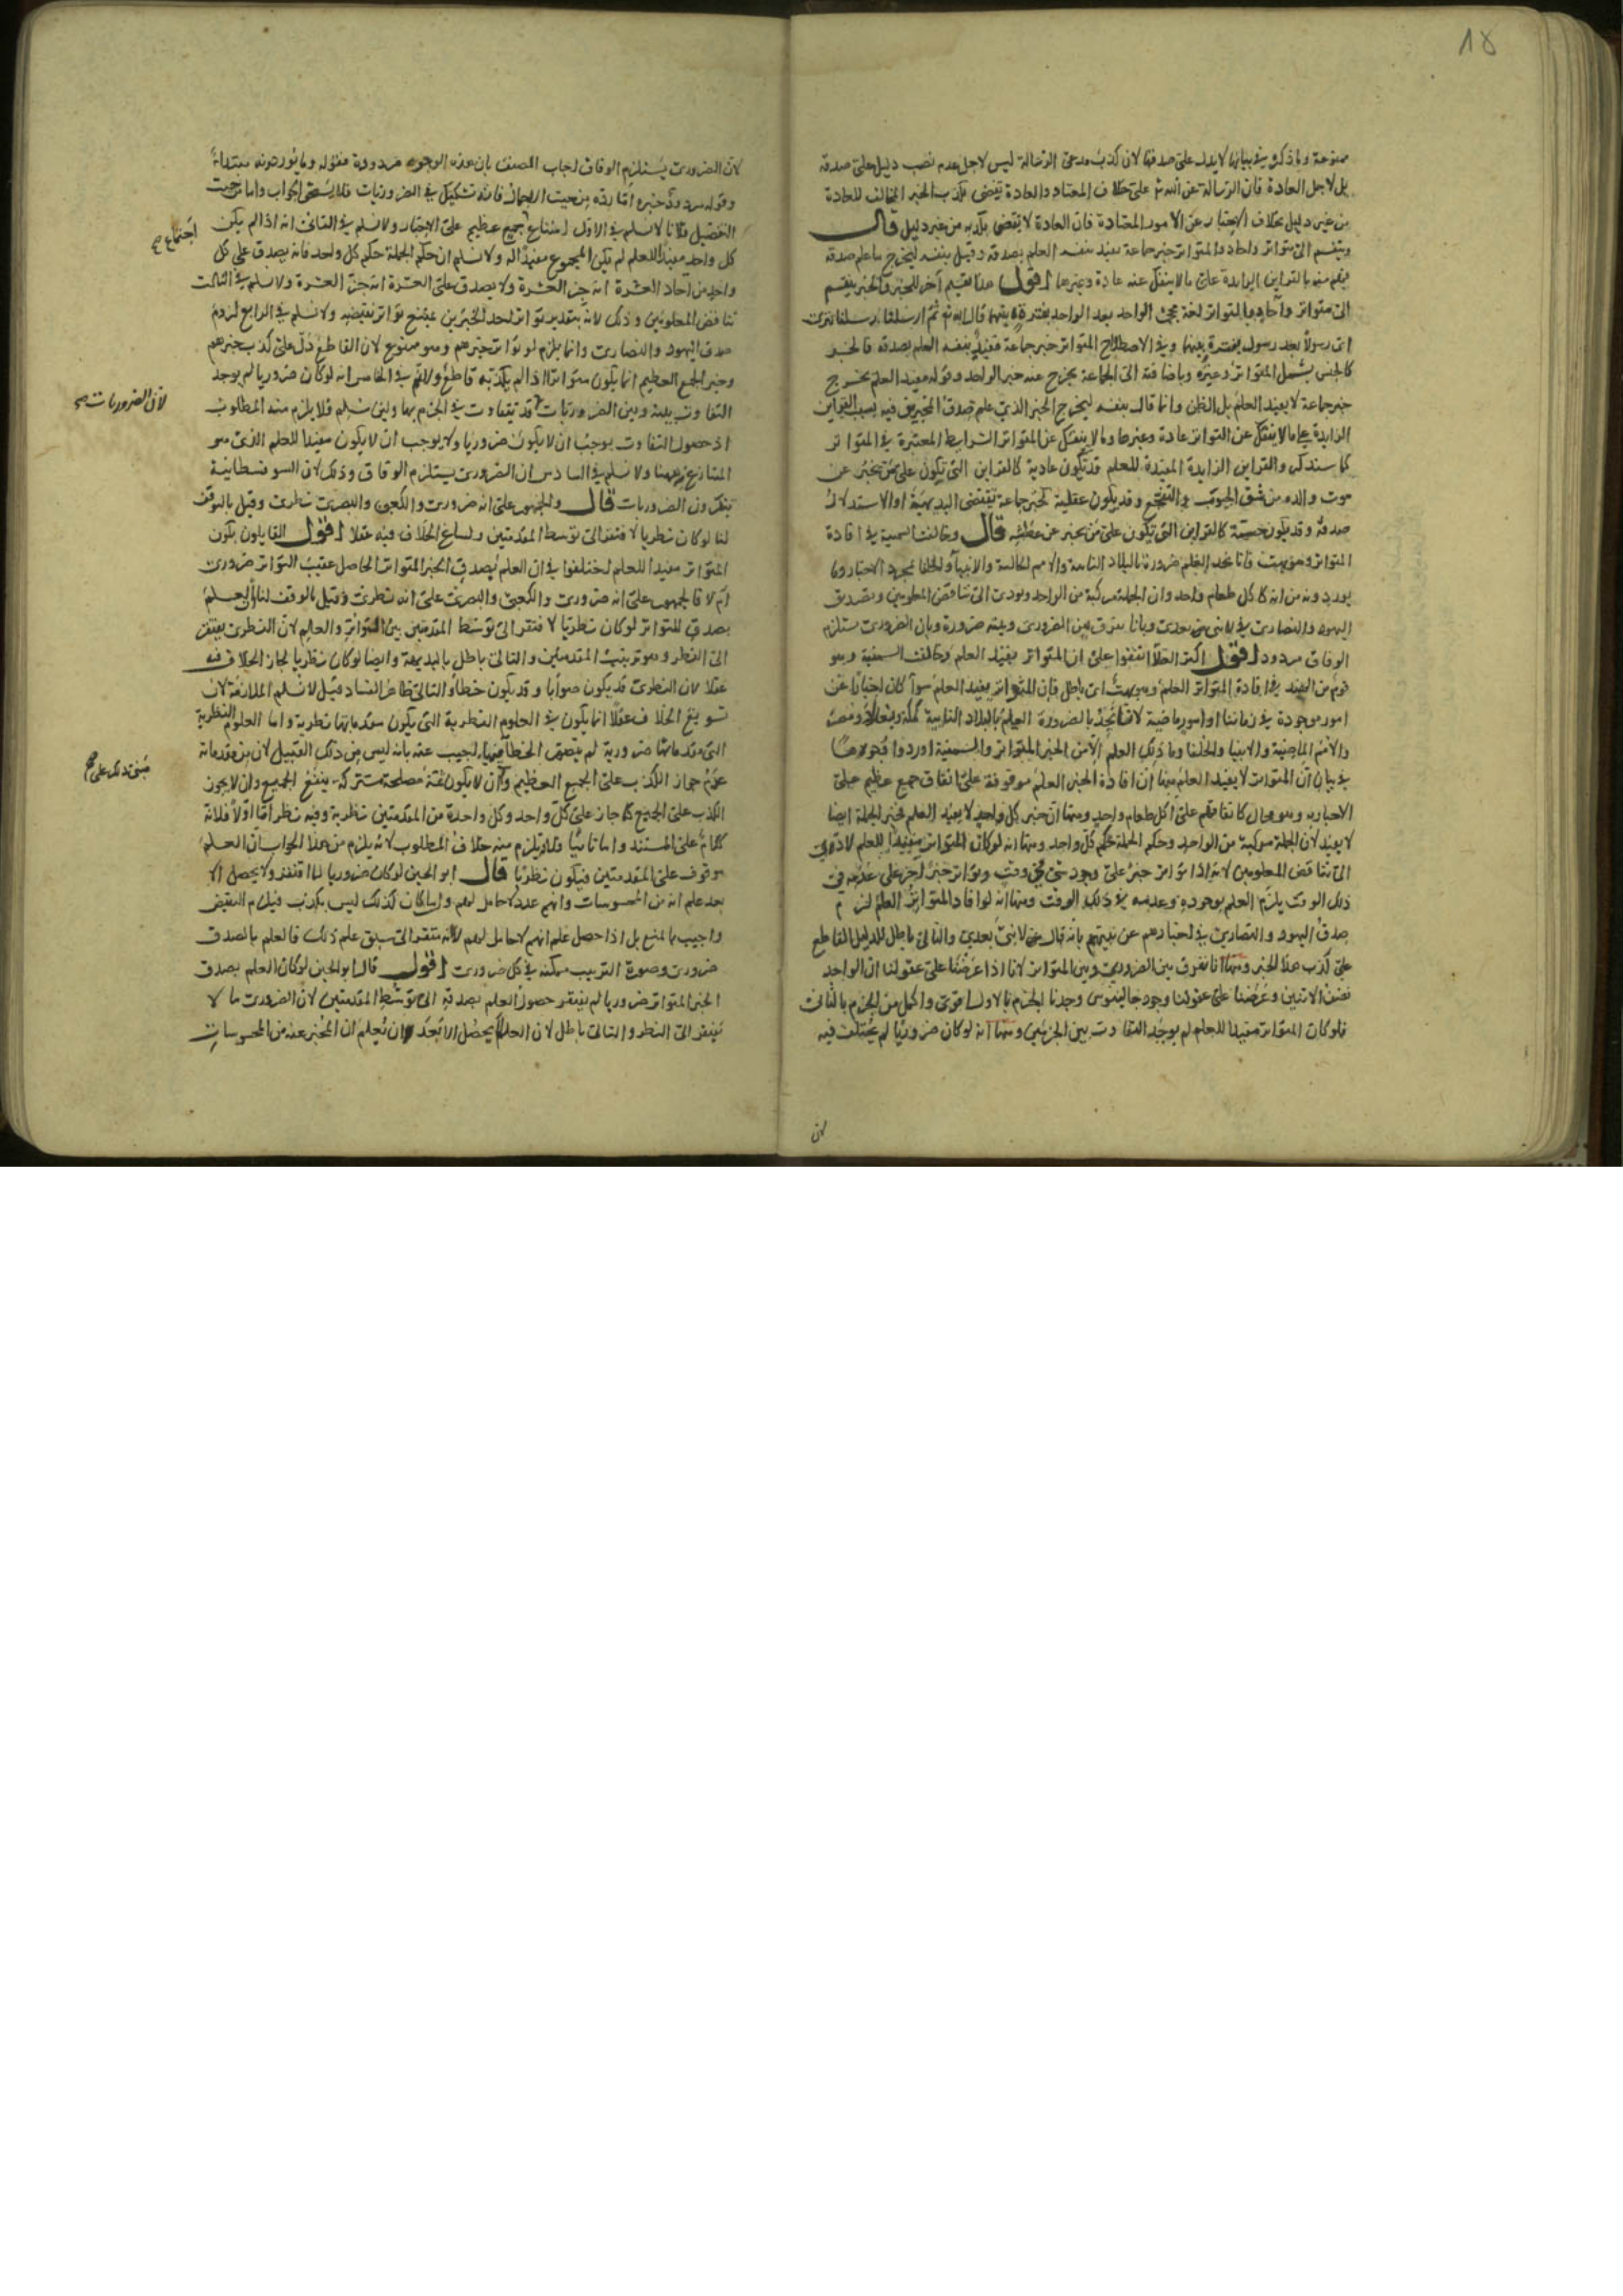 18
ممنوعة وما ذكره في بيانها لا يدل على صدقها لان كذب مدعى الرسالة ليس لاجل عدم نصب دليل على صدقه
بل لاجل العادة فان الرسالة عن الله تع على خلاف المعتاد والعادة تقضى بكذب الخبر المخالف للعادة
من غير دليل بخلاف الاخبار عن الامور المعتادة فان العادة لا تقضى بكذبه من غير دليل قال
وينقسم الى متواتر واحاد والمتواتر خبر جماعة يفيد بنفسه العلم بصدقه وقيل بنفسه ليخرج ما علم صدقه
فيهم منه بالقراين الزايدة على ما لا ينفك عنه عادة وغيرها اقول هذا تقسيم آخر للخبر والخبر ينقسم
الى متواتر وآحاد والمتواتر لغة مجئ الواحد بعد الواحد بفترة بينهما قال الله تع ثم ارسلنا رسلنا تترى
اى رسولا بعد رسول بفترة بينهما وفى الاصطلاح المتواتر خبر جماعة مفيد بنفسه العلم بصدقه فالخبر
كالجنس يشمل المتواتر وغيره وباضافته الى الجماعة يخرج عنه خبر الواحد وقوله مفيد العلم يخرج
خبر جماعة لا يفيد العلم بل الظن وانما قال بنفسه ليخرج الخبر الذي علم صدق المخبرين فيه بسبب القراين
الزايدة على ما لا ينفك عن التواتر عادة وغيرها وما لا ينفك عن المتواتر الشرايط المعتبرة في المتواتر
كما سنذكر والقراين الزايدة المفيدة للعلم قد تكون عادية كالقراين التى تكون على من يخبر عن
موت والده من شق الجيوب والتفجع وقد يكون عقلية كخبر جماعة تقتضى البديهية او الاستدلال
صدقه وقد يكون حسية كالقراين التى تكون على من يخبر عن عطشه قال وخالفت السمنية في افادة
المتواتر وهو بهت فانا نجد العلم ضرورة بالبلاد النائية والامم الخالية والانبيآء والخلفا بمجرد الاخبار وما
يوردونه من انه كاكل طعام واحد وان الجملة مركبة من الواحد ويودى الى تناقض المعلومين وتصديق
اليهود والنصارى في لا نبى بعدى وبانا نفرق بين الضرورى وبينه ضرورة وبان الضرورى يستلزم
الوفاق مردود اقول اكثر العقلا اتفقوا على ان المتواتر يفيد العلم وخالفت السمنية وهو
قوم من الهند في افادة المتواتر العلم وهو بهت اى باطل فان المتواتر يفيد العلم سوآ كان اخبارا عن
امور موجودة في زماننا او امور ماضية لانا نجد بالضرورة العلم بالبلاد النائية كمكة وبغداد ومصر
والامم الماضية والانبيا والخلفا وما ذلك العلم الا من الخبر المتواتر والسمنية اوردوا وجوها
في بيان ان المتواتر لا يفيد العلم منها ان افادة الخبر العلم موقوفة على اتفاق جمع عظيم على
الاخبار به وهو محال كاتفاقهم على اكل طعام واحد ومنها ان خبر كل واحد لا يفيد العلم فخبر الجملة ايضا
لا يفيد لان الجملة مركبة من الواحد وحكم الجملة حكم كل واحد ومنها انه لو كان المتواتر مفيدا للعلم لادى
الى تناقض المعلومين لانه اذا تواتر خبر على وجود شئ في وقت وتواتر خبر آخر على عدمه في
ذلك الوقت يلزم العلم بوجوده وعدمه في ذلك الوقت ومنها انه لو افاد المتواتر العلم لزم
صدق اليهود والنصارى في اخبارهم عن نبيهم بانه قال لا نبى بعدي والتالى باطل للدليل القاطع
على كذب هذا الخبر ومنها انا نفرق بين الضرورى وبين المتواتر لانا اذا عرضنا على عقولنا ان الواحد
نصف الاثنين وعرضنا على عقولنا وجود جالينوس وجدنا الجزم بالاول اقوى واكمل من الجزم بالثانى
فلو كان المتواتر مفيدا للعلم لم يوجد التفاوت بين الجزمين ومنها انه لو كان ضروريا لم يختلف فيه
لان
لان الضرورى يستلزم الوفاق اجاب المصنف بان هذه الوجوه مردودة فقوله وما يوردونه مبتدا
وقوله مردود خبره اما رده من حيث الاجمال فانه تشكيك في الضروريات فلا يستحق الجواب واما من حيث
التفصيل فلانا لا نسلم في الاول امتناع جمع عظيم على الاخبار ولا نسلم في الثانى انه اذا لم يكن
اجتماع صح
كل واحد مفيدا للعلم لم يكن المجموع مفيدا له ولا نسلم ان حكم الجملة حكم كل واحد فانه يصدق على كل
واحد من آحاد العشرة انه جزء العشرة ولا يصدق على العشرة انه جزء العشرة ولا نسلم في الثالث
تناقض المعلومين وذلك لانه بتقدير تواتر احد الخبرين يمتنع تواتر نقيضه ولا نسلم في الرابع لزوم
صدق اليهود والنصارى وانما يلزم لو تواتر خبرهم وهو ممنوع لان القاطع دل على كذب خبرهم
وخبر الجمع العظيم انما يكون متواترا اذا لم يكذبه قاطع ولا نسلم في الخامس انه لو كان ضروريا لم يوجد
التفاوت بينه وبين الضروريات قد تتفاوت في الجزم بها ولئن سلم فلا يلزم منه المطلوب
لان الضروريات صح
اذ حصول التفاوت يوجب ان لا يكون ضروريا ولا يوجب ان لا يكون مفيدا للعلم الذى هو
المتنازع فيه هنا ولا نسلم في السادس ان الضرورى يستلزم الوفاق وذلك لان السوفسطاينة
ينكرون الضروريات قال والجمهور على انه ضرورى والكعبى والبصرى نظرى وقيل بالوقف
لنا لو كان نظريا لافتقر الى توسط المقدمتين ولساغ الخلاف فيه عقلا اقول القايلون بكون
المتواتر مفيدا للعلم اختلفوا في ان العلم بصدق الخبر المتواتر الحاصل عقيب التواتر ضرورى
ام لا فالجمهور على انه ضرورى والكعبى والبصرى على انه نظرى وقيل بالوقف لنا ان العلم
بصدق المتواتر لو كان نظريا لافتقر الى توسط المقدمتين بين التواتر والعلم لان النظرى يفتقر
الى النظر وهو ترتيب المقدمتين والتالى باطل بالبديهة وايضا لو كان نظريا لجاز الخلاف فيه
عقلا لان النظرى قد يكون صوابا وقد يكون خطأ والتالى ظاهر الفساد قيل لا نسلم الملازمة لان
تسويغ الخلاف عقلا انما يكون في العلوم النظرية التى يكون مقدماتها نظرية واما العلوم النظرية
التى مقدماتها ضرورية لم يتصور الخطأ فيها اجيب عنه بانه ليس من ذلك القبيل لان من مقدماته
مبنى ذلك على صح
عدم جواز الكذب على الجمع العظيم وان لا يكون ثمة مصلحة مشتركة ينتفع الجميع وان لا يجوز
الكذب على الجميع كما جاز على كل واحد وكل واحدة من المقدمتين نظرية وفيه نظر اما اولا فلانه
كلام على المستند واما ثانيا فلانه يلزم منه خلاف المطلوب لانه يلزم من هذا الجواب ان العلم
موقوف على المقدمتين فيكون نظريا قال ابو الحسين لو كان ضروريا لما افتقر ولا يحصل الا
بعد علم انه من المحسوسات وانهم عدد لا حامل لهم وان ما كان كذلك ليس بكذب فيلزم النقيض
واجيب بالمنع بل اذا حصل علم انهم لا حامل لهم لا انه مفتقر الى سبق علم ذلك فالعلم بالصدق
ضرورى وصورة الترتيب ممكنة في كل ضرورى اقول قال ابو الحسين لو كان العلم بصدق
الخبر المتواتر ضروريا لم يفتقر حصول العلم بصدقه الى توسط المقدمتين لان الضرورى ما لا
يفتقر الى النظر والتالى باطل لان العلم لا يحصل الا بعد ان يعلم ان المخبر عنه من المحسوسات